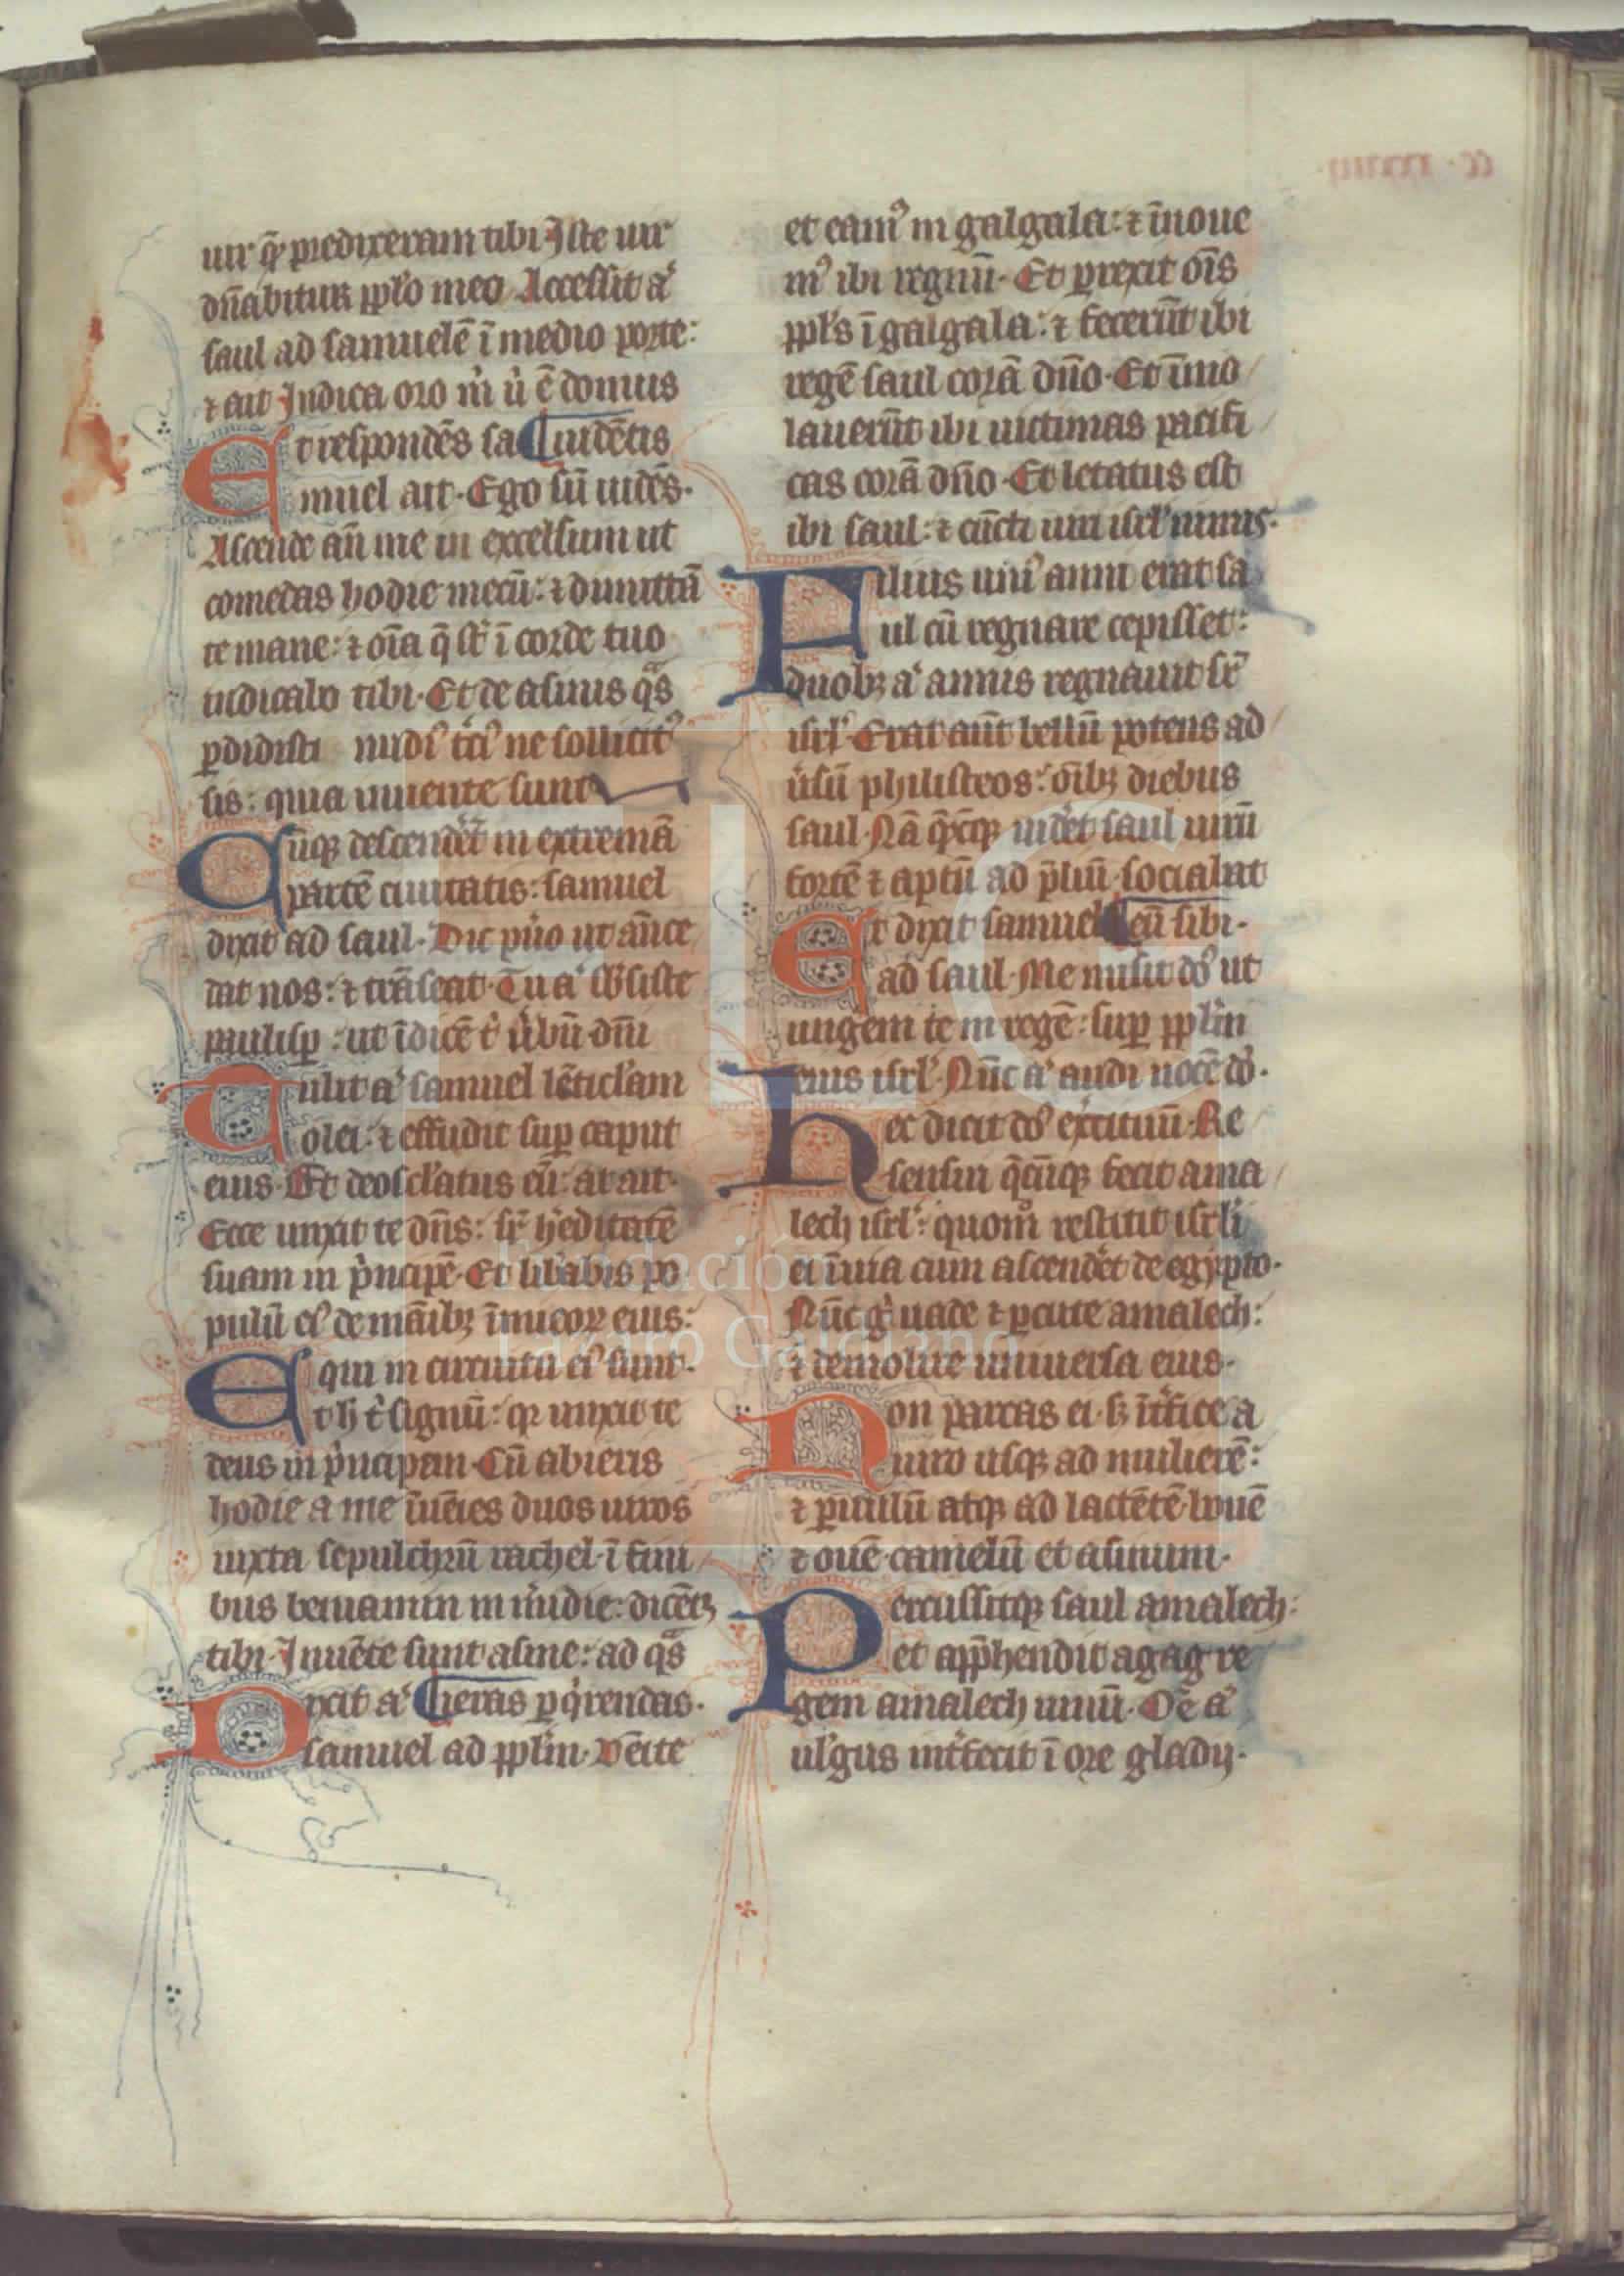 uir q̄ predixeram tibi Iste uir
dn̄abitur pplo meo Accessit a͛
saul ad samuelē ī medio porte:
⁊ ait Indica oro m̉ u̓ ē domus
Et respondēs sa ¶ uidētis
muel ait. Ego sū uidēs.
Ascende an̄ me in excelsum ut
comedas hodie mecū: ⁊ dimittā
te mane: ⁊ oīa q̄ st̄ ī corde tuo
indicabo tibi. Et de asinis qͣs
ꝑdidisti nudiꝰ tͨiꝰ ne sollicitꝰ
sis: quia inuente sunt
Cūqꝫ descendēt in extremā
partē ciuitatis: samuel
dixit ad saul. Dic puo ut an̄ce
dat nos: ⁊ trāseat. Tu a͛ sb̄siste
paulisꝑ: ut īdicē t̉ u̓bū dn̄i
Tulit a͛ samuel lēticlam
olei: ⁊ effudit suꝑ caput
eius. Et deosclatus eū: at ait.
Ecce unxit te dn̄s: sr̄ hēditatē
suam in pͥncipē. Et lib̄abis po
pulū eiꝰ de māibꝫ īnimicoꝝ eius:
qui in circuitu eiꝰ sunt.
Et h̄ t̉ signū: qꝛ unxit te
deus in pͥncipem Cū abieris
hodie a me īuēies duos uiros
iuxta sepulchrū rachel. ī fini
bus beniamin in m̓idie: dicētqꝫ
tibi. Inuēte sunt asine: ad qͣs
Dixit a͛ ¶ ieras ꝑqͥrendas.
samuel ad pplm. Uēite
et eamꝰ in galgala: ⁊ īnoue
mꝰ ibi regnū. Et ꝑrexit oīs
ppls ī galgala: ⁊ fecerūt ibi
regē saul corā dn̄o. Et īmo
lauerūt ibi uictimas pacifi
cas corā dn̄o. Et letatus est
ibi saul: ⁊ cūcti uiri isrl̓ nimis.
Filius uniꝰ anni erat sa
ul cū regnare cepisset:
duobꝫ a͛ annis regnauit sr̄
isrl̓. Erat aūt bellū potens ad
u̓sū philisteos: oībꝫ diebus
saul. Nā q̄cūqꝫ uid̓et saul uirū
fortē ⁊ aptū ad p̄liū. sociabat
Et dixit samuel ¶ eū sibi.
ad saul. Me misit dꝰ ut
ungem te in regē: suꝑ pplm
eius isrl̓. Nūc a͛ audi uocē dꝰ.
Hec dicit dꝰ ex̓cituū. Re
sensui q̄cūqꝫ fecit ama
lech isrl̓: quom̊ restitit isrli̓
ei ī uia cum ascend̓et de egypto.
Nūc g̊ uade ⁊ ꝑcute amalech:
⁊ demolire uniuersa eius.
Non parcas ei. sꝫ īt̓fice a
uiro usqꝫ ad mulierē:
⁊ ꝑuulū atqꝫ ad lactētē. bouē
⁊ ouē. camelū et asinum.
Percussitqꝫ saul amalech:
et app̄hendit agag re
gem amalech uiuū. Oē a͛
ulgus int̓fecit ī ore gladij.
Fundación
Lázaro Galdiano